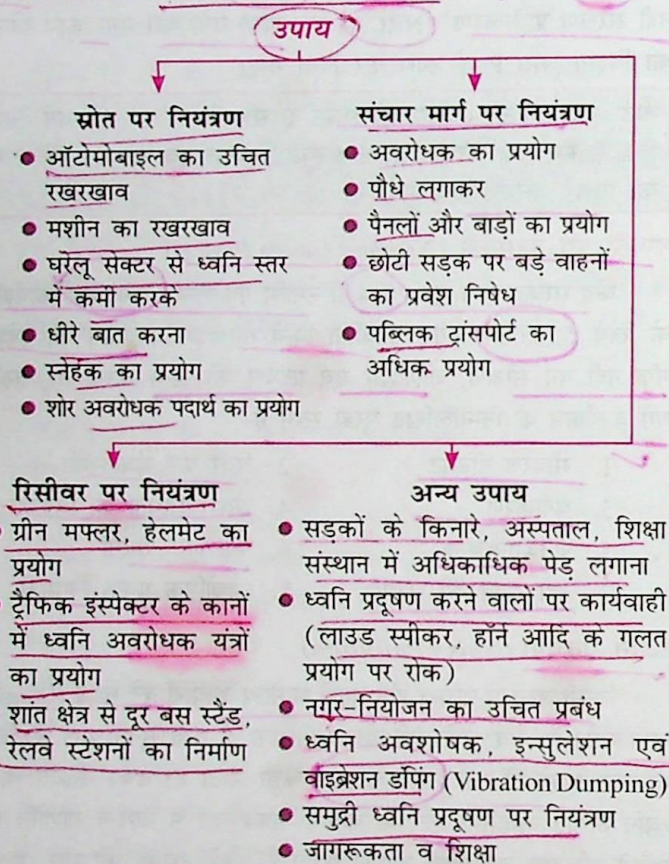 उपाय
स्रोत पर नियंत्रण
● ऑटोमोबाइल का उचित
रखरखाव
● मशीन का रखरखाव
● घरेलू सेक्टर से ध्वनि स्तर
में कमी करके
● धीरे बात करना
● स्नेहक का प्रयोग
● शोर अवरोधक पदार्थ का प्रयोग
संचार मार्ग पर नियंत्रण
● अवरोधक का प्रयोग
● पौधे लगाकर
● पैनलों और बाडों का प्रयोग
● छोटी सड़क पर बड़े वाहनों
का प्रवेश निषेध
● पब्लिक ट्रांसपोर्ट का
अधिक प्रयोग
रिसीवर पर नियंत्रण
● ग्रीन मफ्लर, हेलमेट का
प्रयोग
● ट्रैफिक इंस्पेक्टर के कानों
में ध्वनि अवरोधक यंत्रों
का प्रयोग
शांत क्षेत्र से दूर बस स्टैंड,
रेलवे स्टेशनों का निर्माण
अन्य उपाय
● सड़कों के किनारे, अस्पताल, शिक्षा
संस्थान में अधिकाधिक पेड़ लगाना
● ध्वनि प्रदूषण करने वालों पर कार्यवाही
(लाउड स्पीकर, हॉर्न आदि के गलत
प्रयोग पर रोक)
● नगर-नियोजन का उचित प्रबंध
● ध्वनि अवशोषक, इन्सुलेशन एवं
वाइब्रेशन डंपिंग (Vibration Dumping)
● समुद्री ध्वनि प्रदूषण पर नियंत्रण
● जागरूकता व शिक्षा